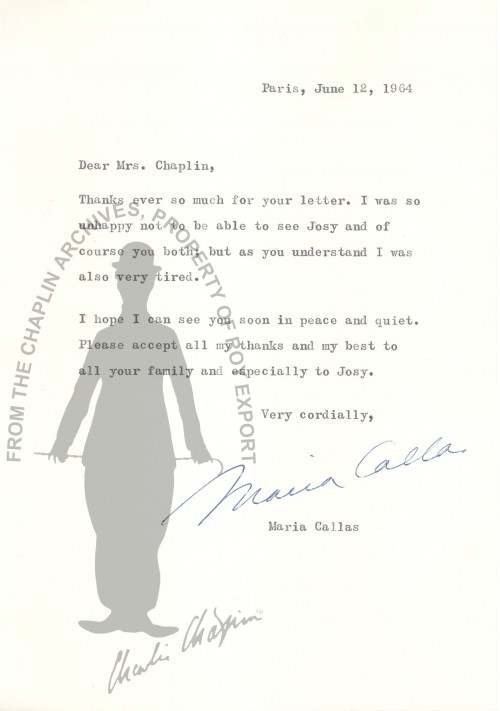 Paris, June 12, 1964
Dear Mrs. Chaplin,
Thanks ever so much for your letter. I was so
unhappy not to be able to see Josy and of
course you both; but as you understand I was
also very tired.
I hope I can see you soon in peace and quiet.
Please accept all my thanks and my best to
all your family and especially to Josy.
Very cordially,
Maria Callas
Maria Callas
FROM THE CHAPLIN ARCHIVES, PROPERTY OF ROY EXPORT
Charlie Chaplin™